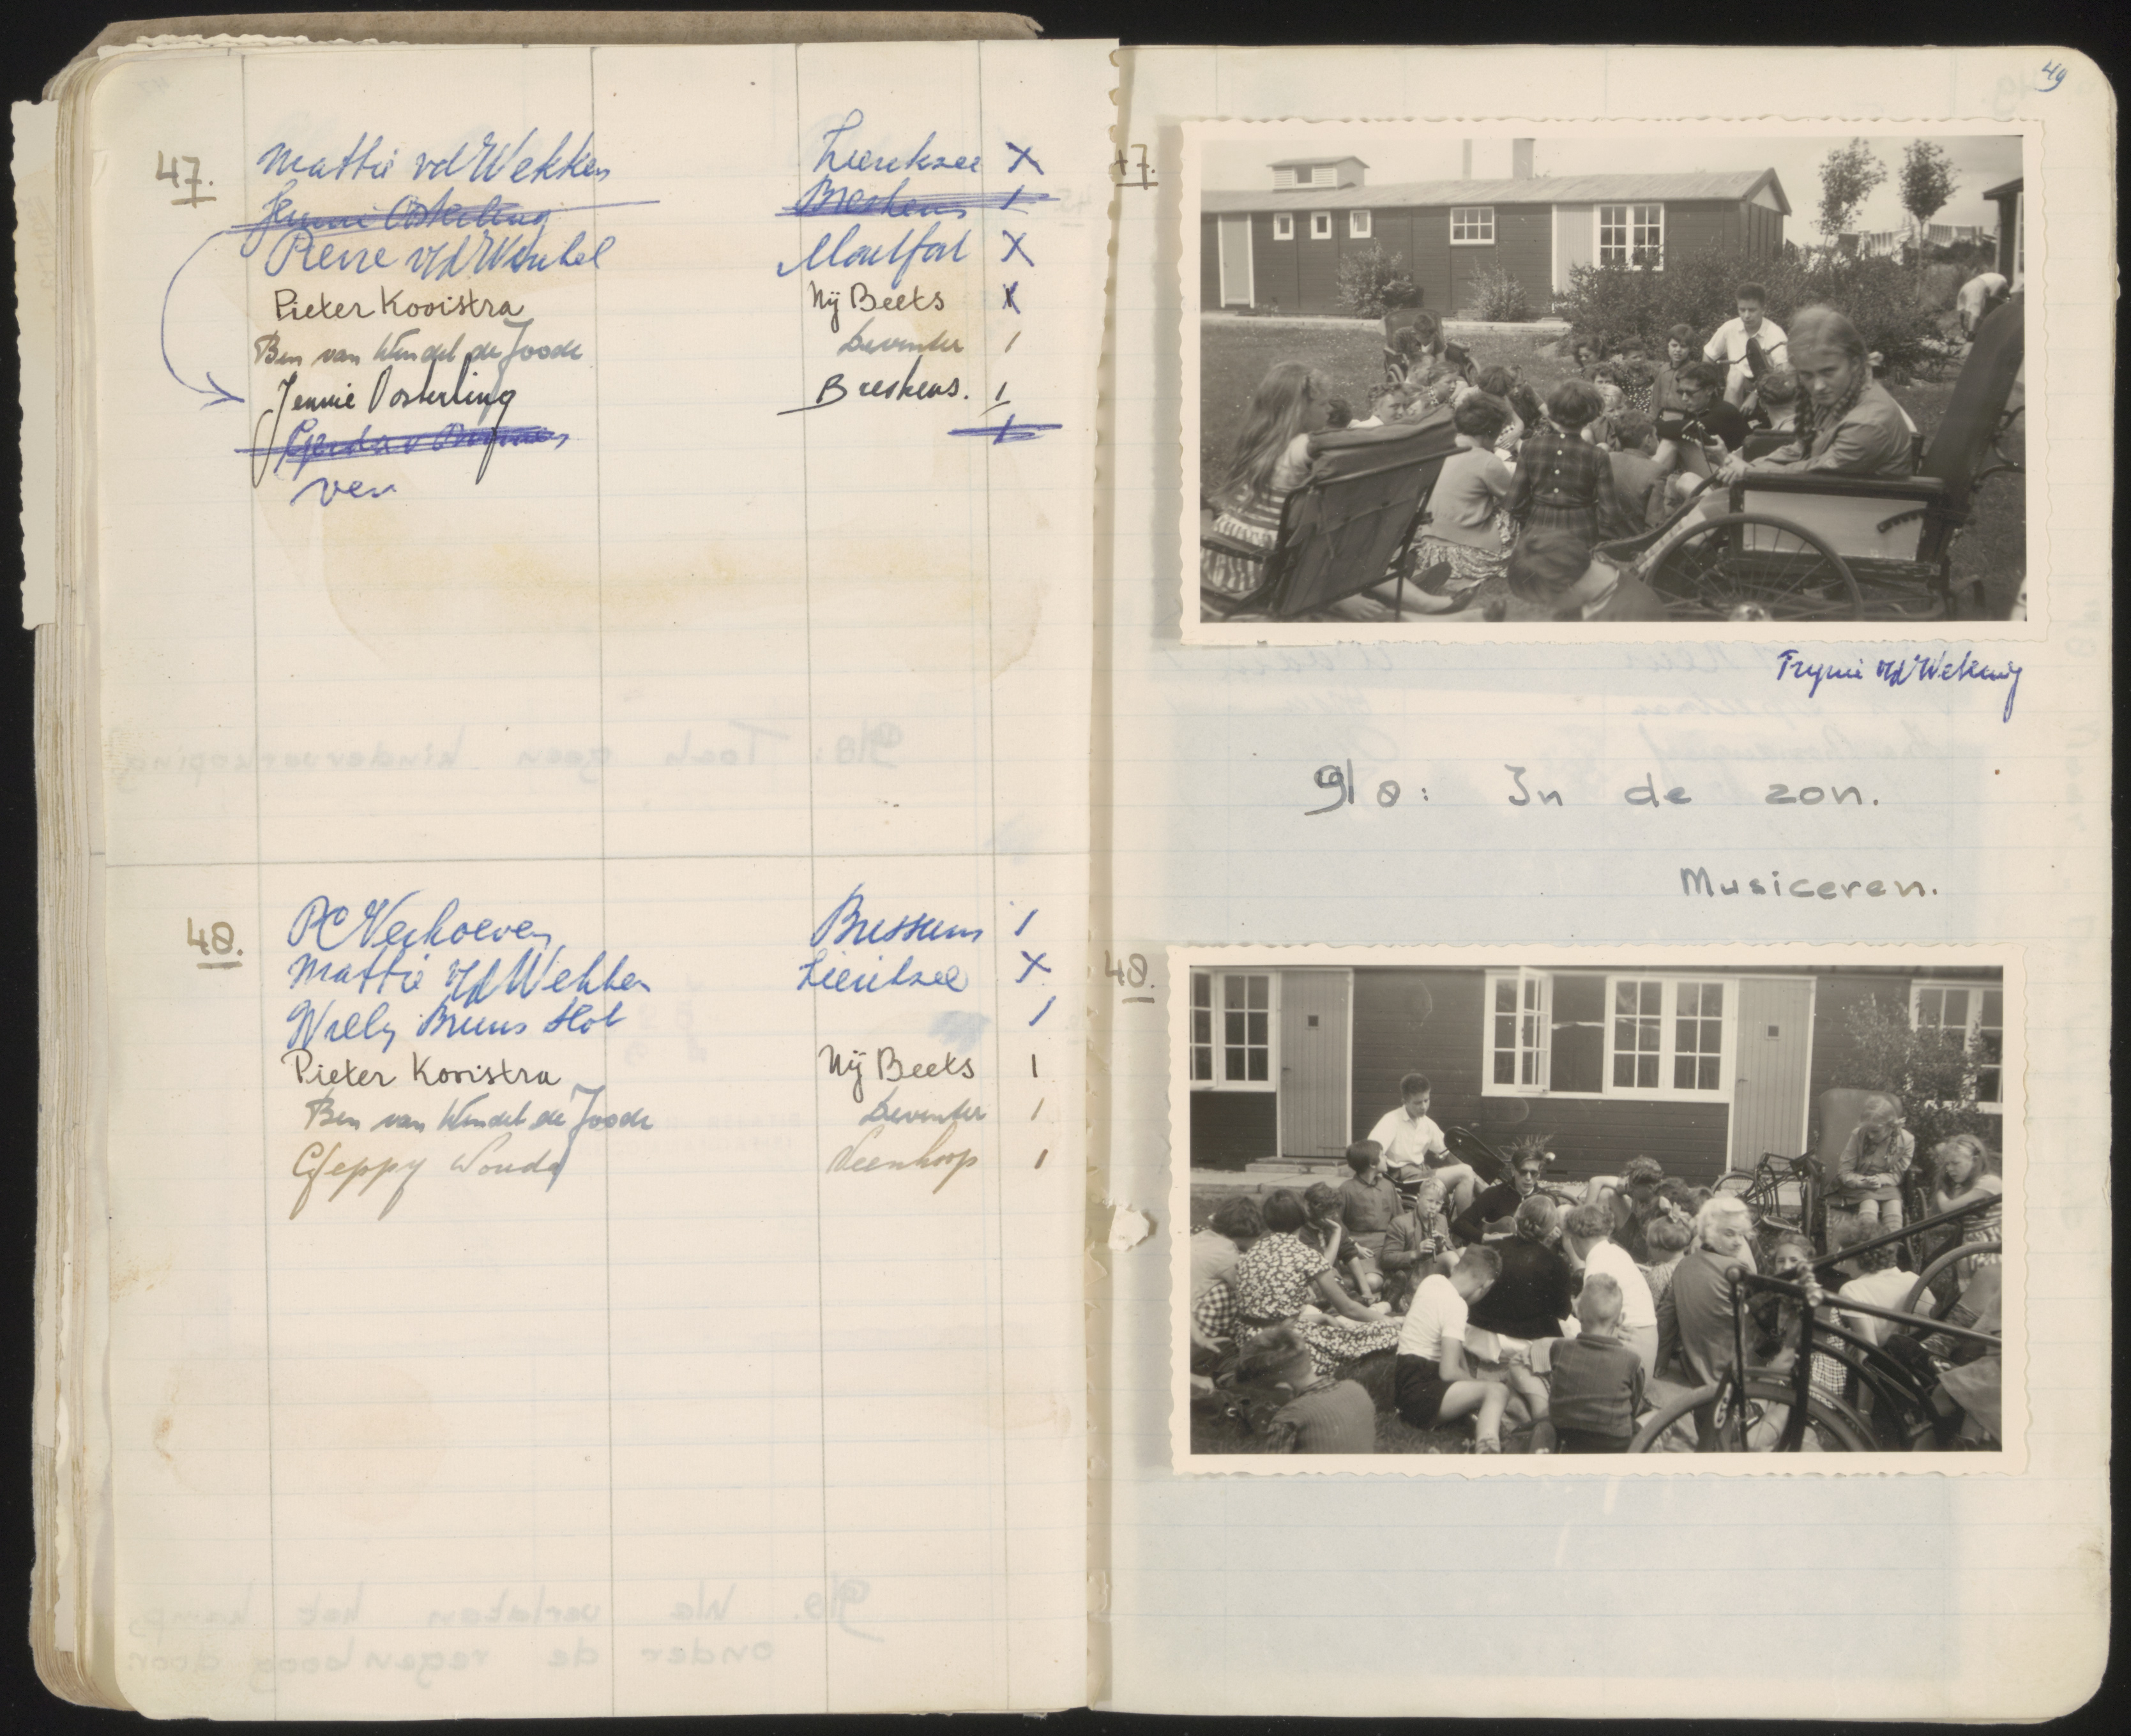 47. Mattie vd Wekken Zierikzee X
Jennie Oosterling Breskens 1
Pierre v/d Winkel Montfort X
Pieter Kooistra Nij Beets X
Ben van Windel de Joode Deventer 1
Jennie Oosterling Breskens. 1
Gerda v 1
ver
48. PC Verhoeven Bussum 1
Mattie v/d Wekken Zierikzee X
Willy Bruins Slot 1
Pieter Kooistra Nij Beets 1
Ben van Windel de Joode Deventer 1
Geppy Wouda Veenhoop 1
49
47.
Trynie v/d
9/8: In de zon.
Musiceren.
48.